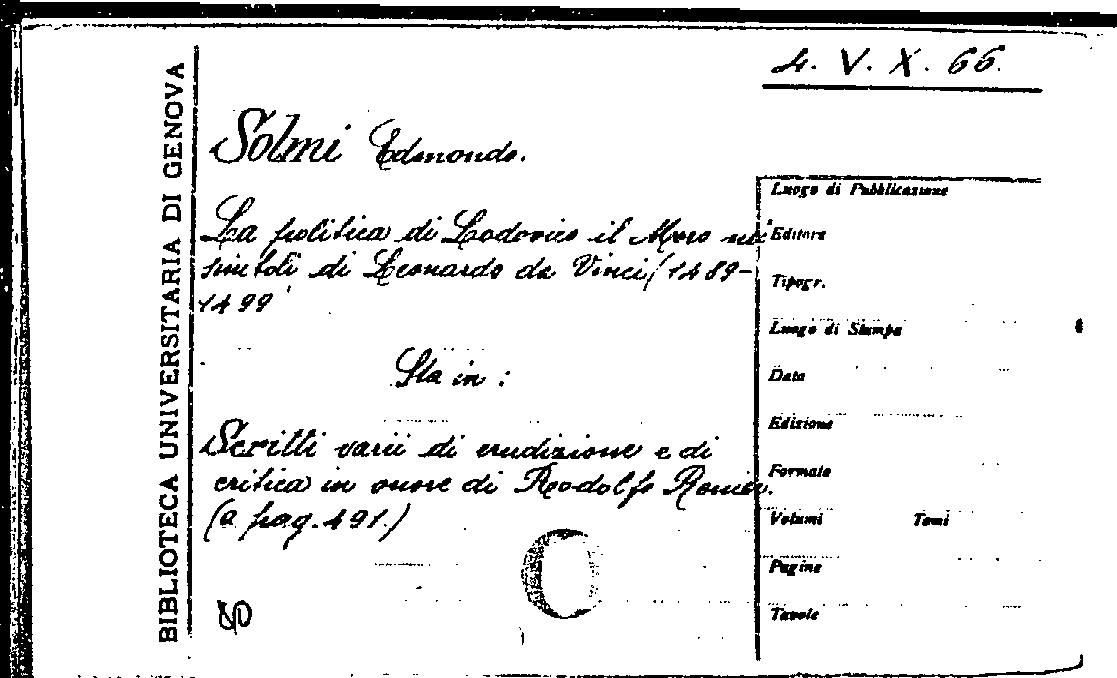 4. V. X. 66.
BIBLIOTECA UNIVERSITARIA DI GENOVA
Solmi Edmondo.
La politica di Lodovico il Moro nei
simboli di Leonardo da Vinci (1489-
1499
Sta in:
Scritti varii di erudizione e di
critica in onore di Rodolfo Renier.
(a pag. 491.)
Luogo di Pubblicazione
Editore
Tipogr.
Luogo di Stampa
Data
Edizione
Formato
Volumi Tomi
Pagine
Tavole